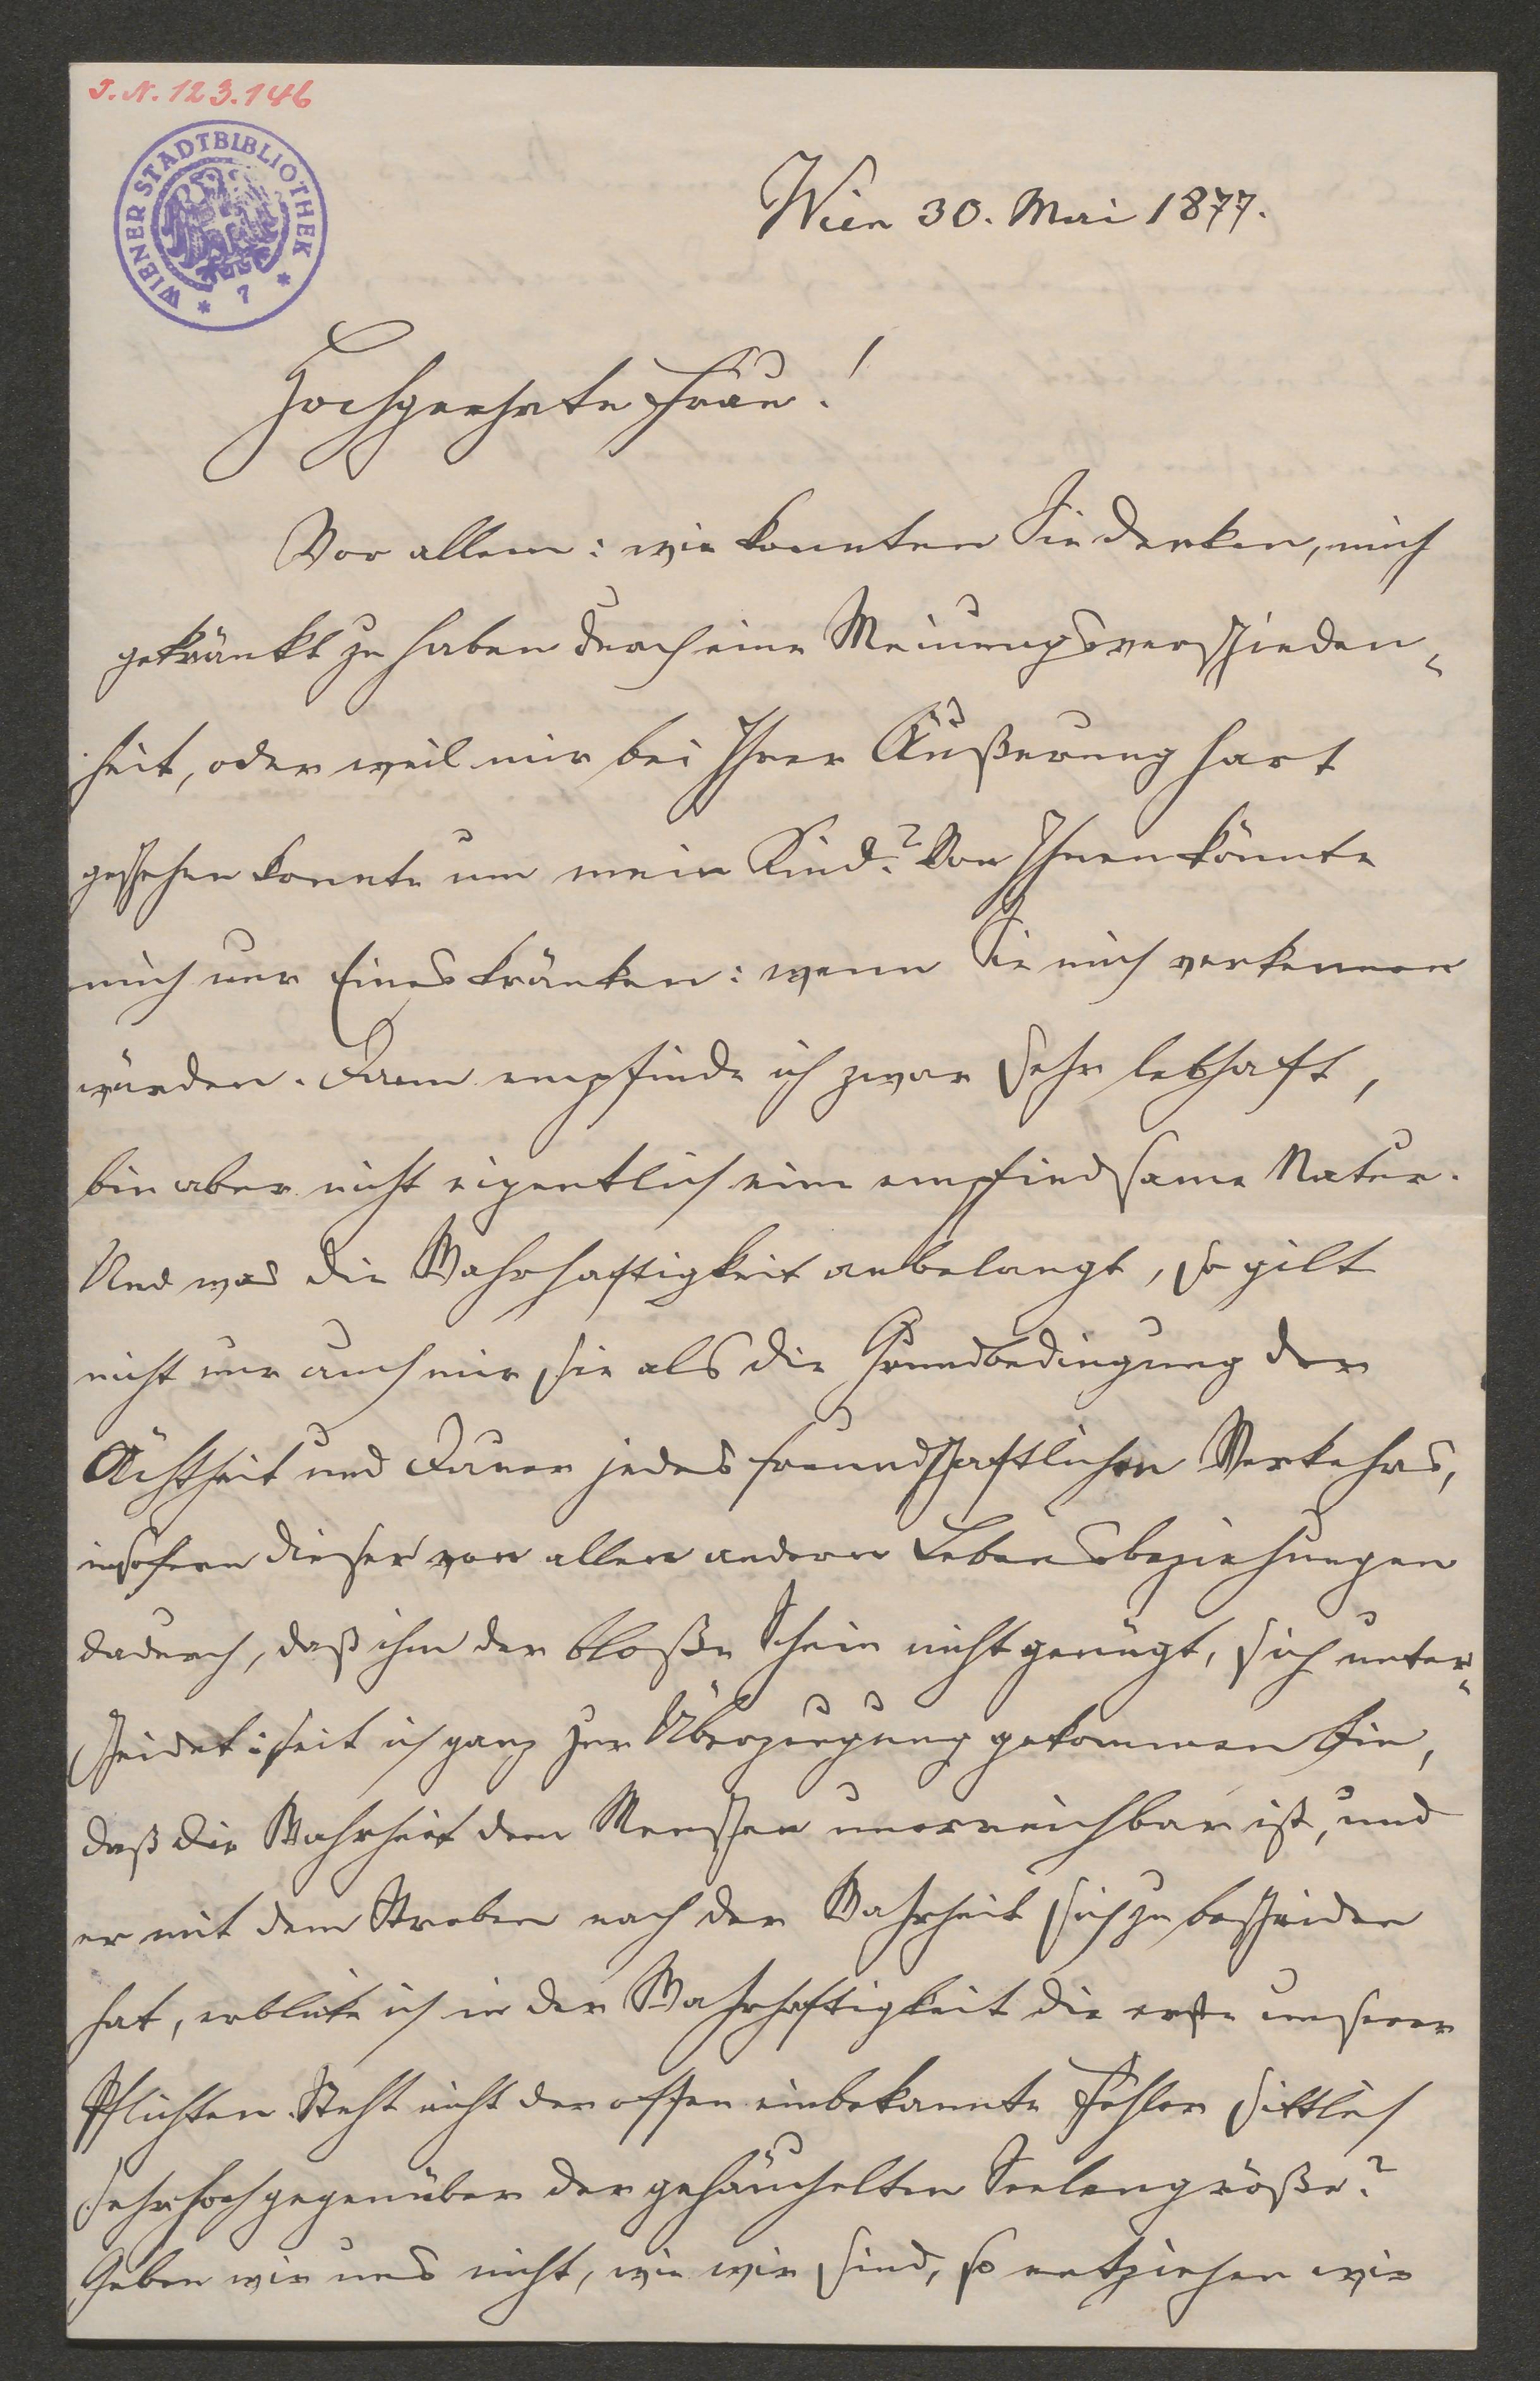 I. N. 123.146
WIENER STADTBIBLIOTHEK * 7 *
Wien 30. Mai 1877.
Hochgeehrte Frau!
Vor allem: wie konnten Sie denken, mich
gekränkt zu haben durch eine Meinungsverschieden-
heit, oder weil mir bei Ihrer Äußerung hart
geschehen konnte um mein Kind? Von Ihnen könnte
mich nur Eines kränken: wenn Sie mich verkennen
würden. Dann empfinde ich zwar sehr lebhaft,
bin aber nicht eigentlich eine empfindsame Natur.
Und was die Wahrhaftigkeit anbelangt, so gilt
nicht nur auch mir sie als die Grundbedingung der
Ächtheit und Dauer jedes freundschaftlichen Verkehrs,
insofern dieser von allen andern Lebensbeziehungen
dadurch, daß ihm der bloße Schein nicht genügt, sich unter-
scheidet: seit ich ganz zur Überzeugung gekommen bin,
daß die Wahrheit dem Menschen unerreichbar ist, und
er mit dem Streben nach der Wahrheit sich zu bescheiden
hat, erblicke ich in der Wahrhaftigkeit die erste unserer
Pflichten. Steht nicht der offen einbekannte Fehler sittlich
sehr hoch gegenüber der geheuchelten Seelengröße?
Geben wir uns nicht, wie wir sind, so entziehen wir